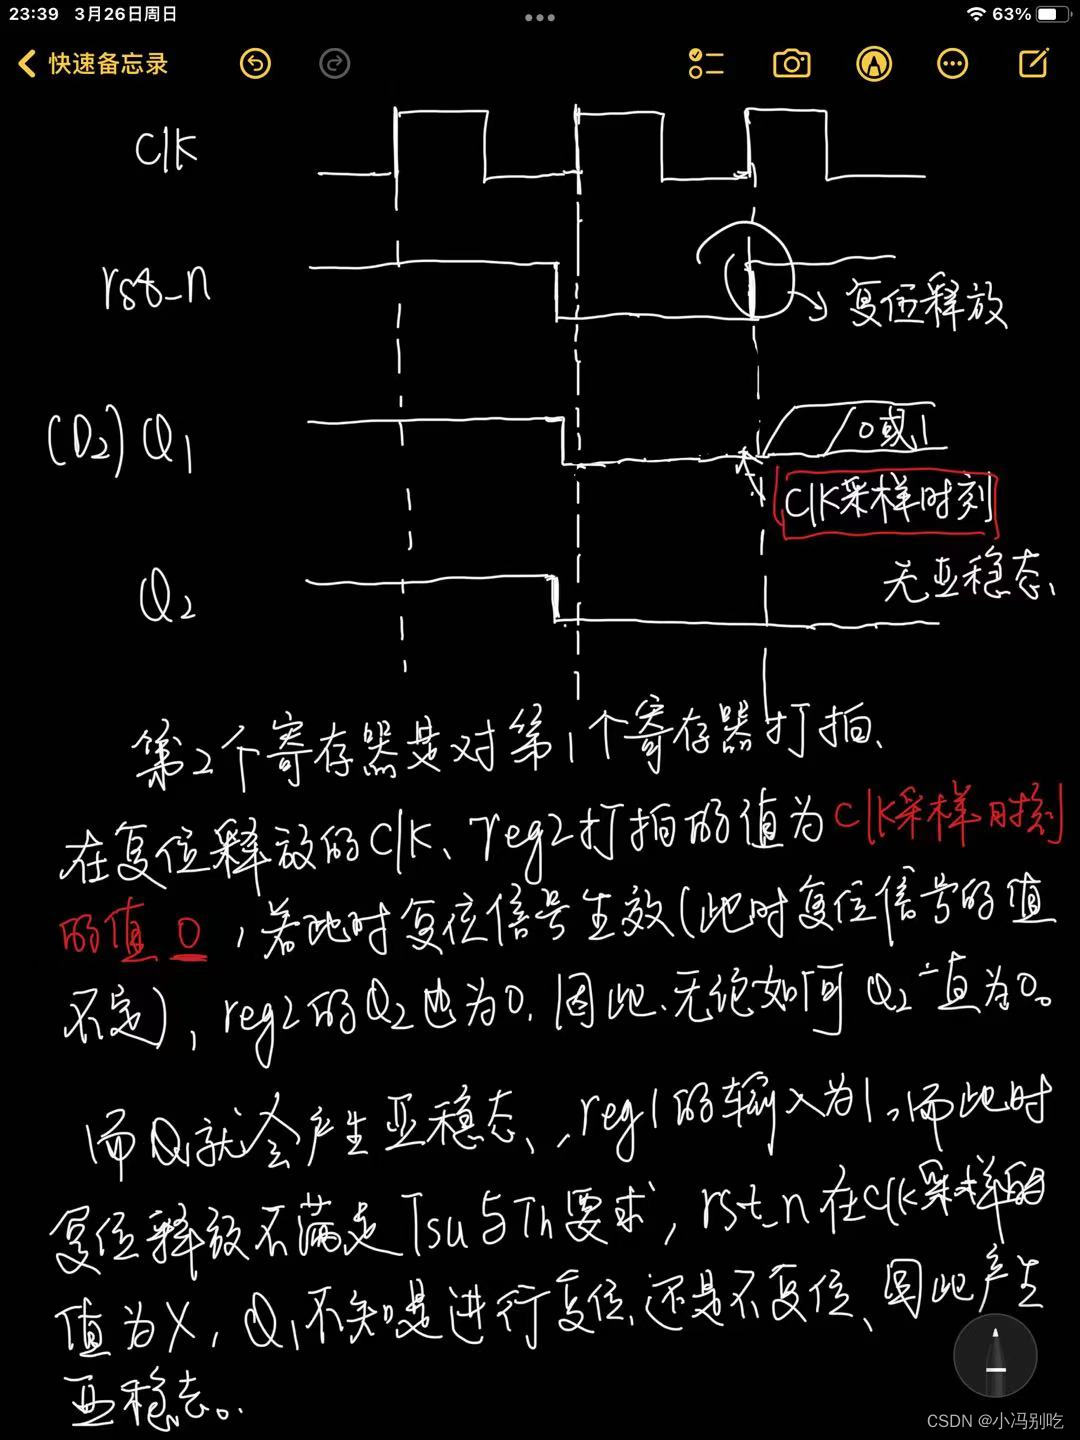 23:39 3月26日周日
63%
快速备忘录
clk
rst_n
复位释放
(D2) Q1
0或1
clk采样时刻
无亚稳态、
Q2
第2个寄存器是对第1个寄存器打拍、
在复位释放的clk、reg2打拍的值为clk采样时刻
的值0，若此时复位信号生效(此时复位信号的值
不定)，reg2的Q2也为0.因此、无论如何Q2一直为0。
而Q1就会产生亚稳态、，reg1的输入为1，而此时
复位释放不满足Tsu与Th要求，rst_n在clk采样的
值为X，Q1不知是进行复位、还是不复位、因此产生
亚稳态。
CSDN @小冯别吃